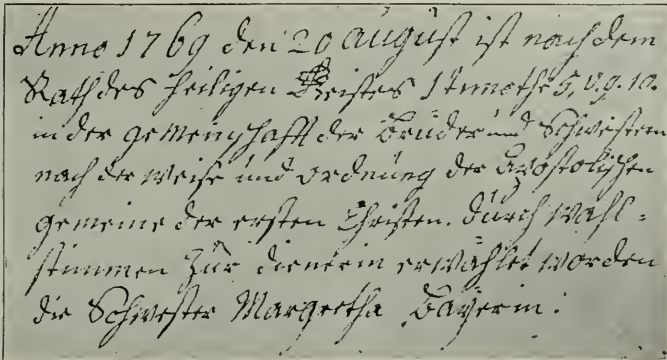 Anno 1769 den 20 August ist nach dem
Rath des heiligen Geistes 1 Timothe 5, v. 9. 10.
in der gemeinschafft der Brüder und Schwestern
nach der weise und ordnung der Apostolischen
gemeine der ersten Christen. durch wahl=
stimmen zur dienerin erwählet worden
die Schwester Margretha Bayerin.